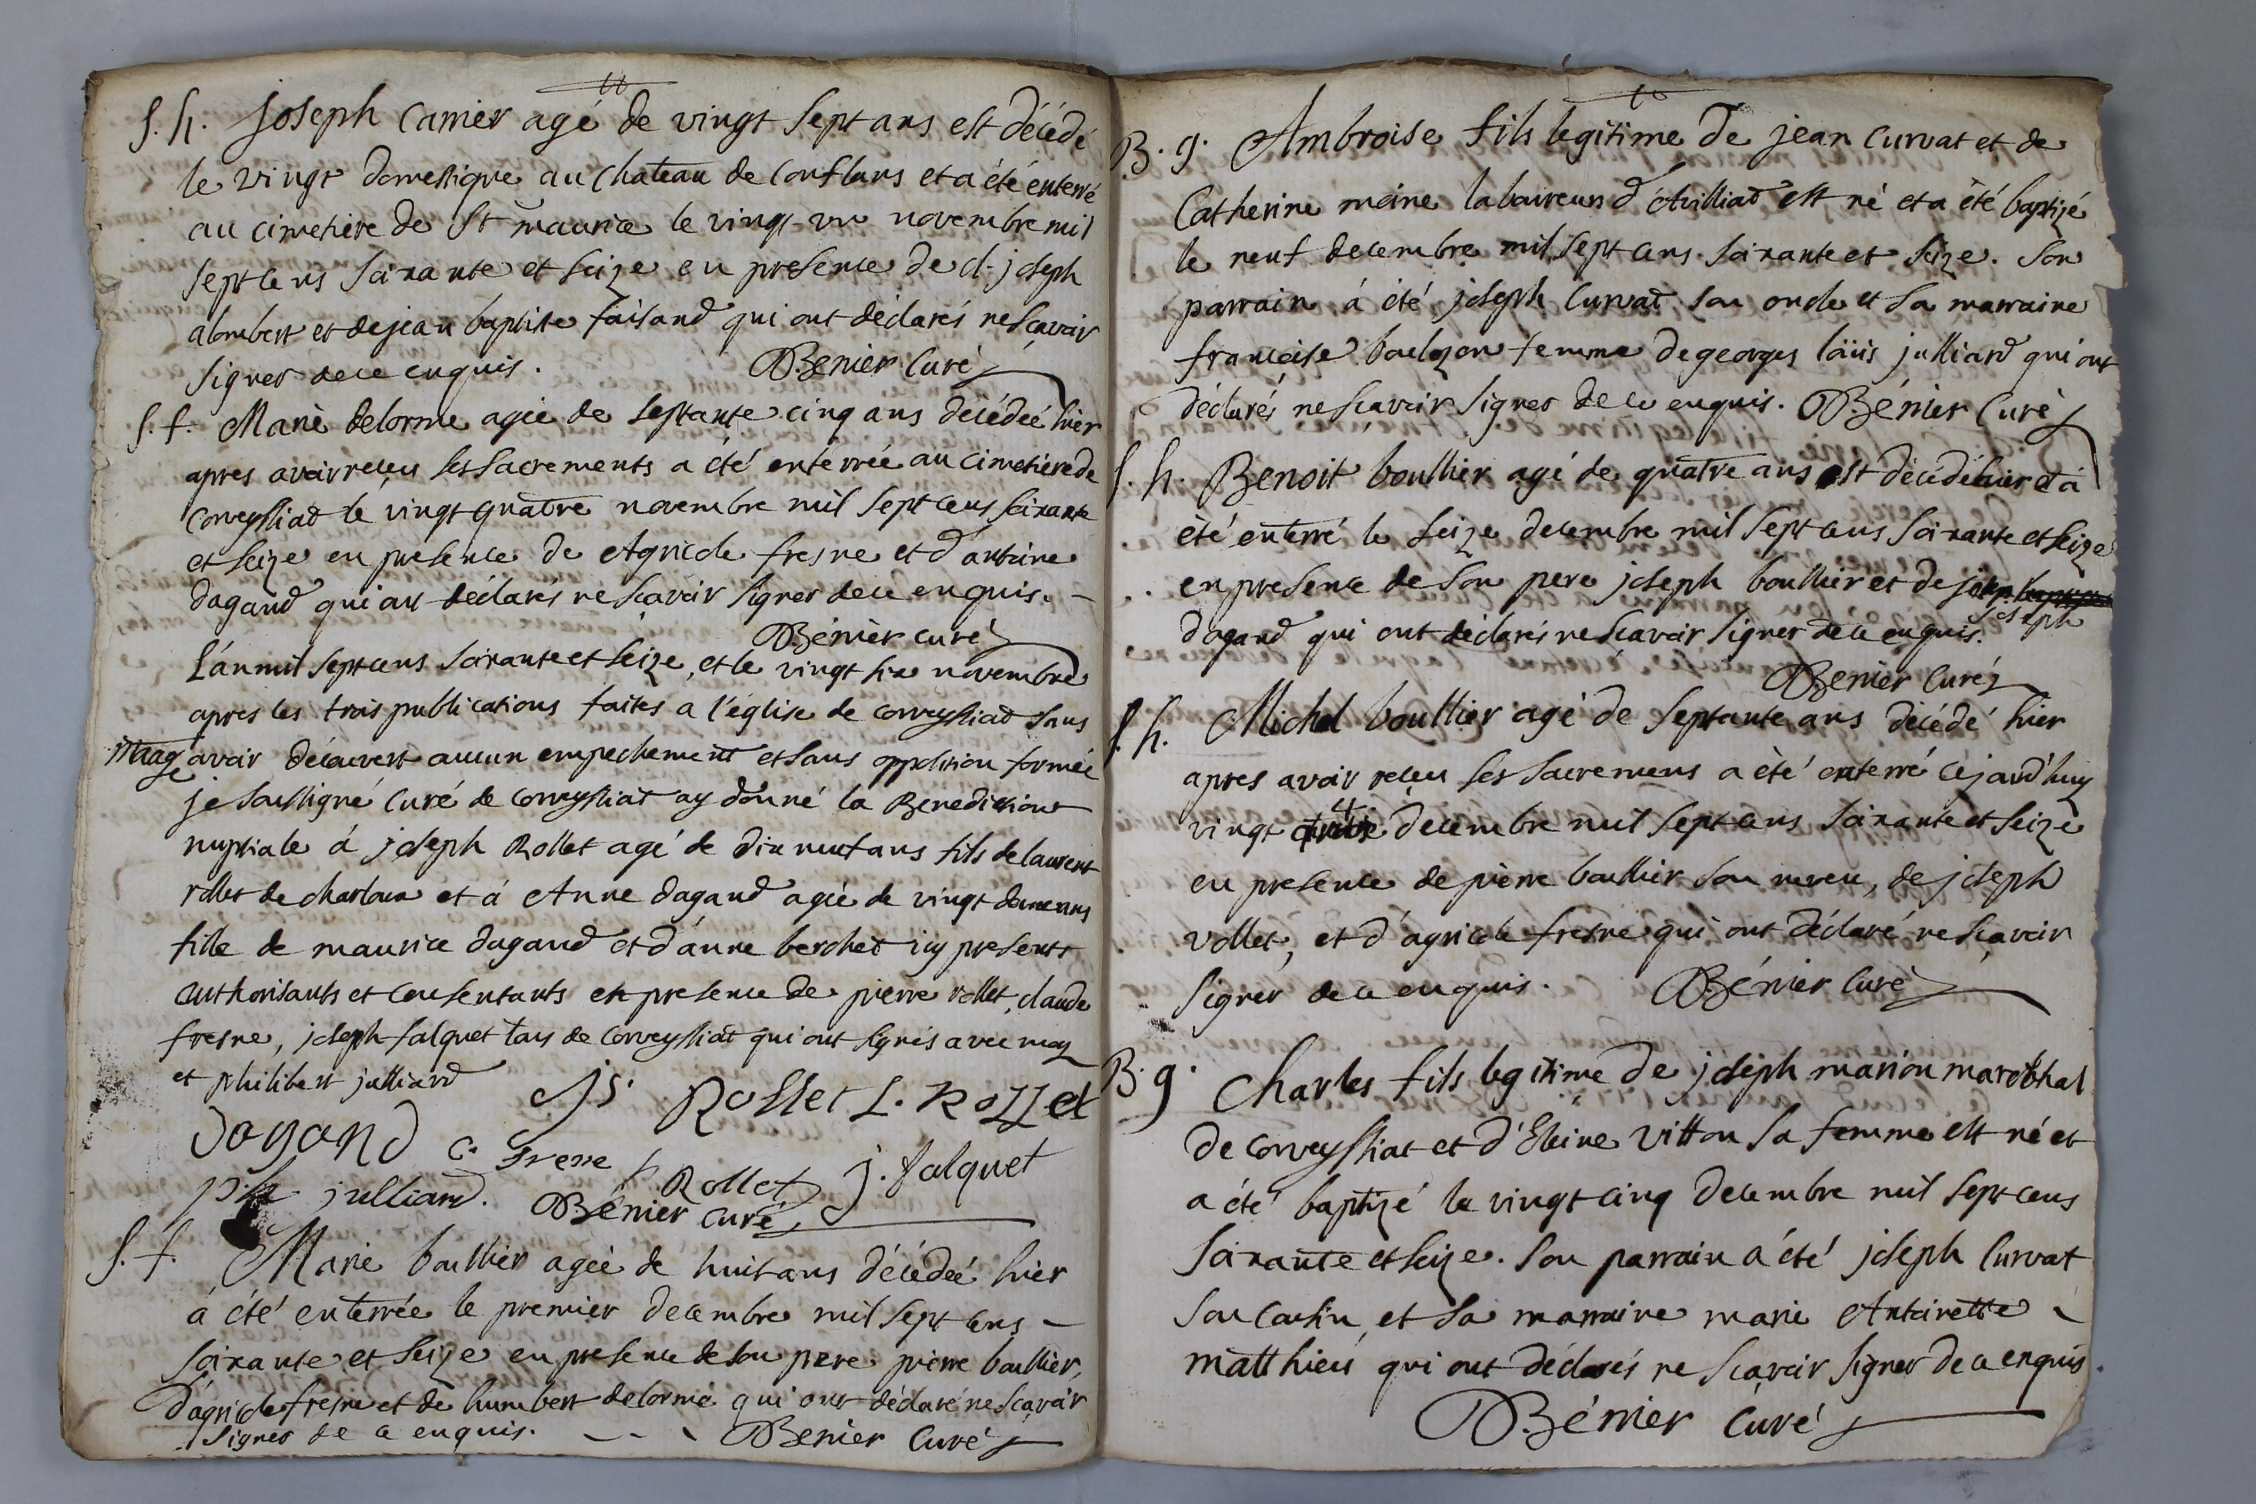 S. h. joseph Carrier agé de vingt sept ans est décédé
le vingt domestique au Chateau de Conflans et a été enterré
au cimetiere de St maurice le vingt un novembre mil
sept cens soixante et seize en presence de cl. joseph
alombert et de jean baptiste faisand qui ont déclarés ne sçavoir
signer de ce enquis. Bénier Curé
S. f. Marie delorme agée de septante cinq ans décédée hier
apres avoir reçeu ses sacrements a été enterrée au cimetiere de
Corveyssiat le vingt quatre novembre mil sept cens soixante
et seize en presence de Agricole fresne et d'antoine
dagand qui ont déclarés ne sçavoir signer de ce enquis.
Bénier curé
L'an mil sept cens soixante et seize, et le vingt six novembre
apres les trois publications faites a l'église de Corveyssiat sans
Mage avoir découvert aucun empechement et sans opposition formée
je soussigné Curé de Corveyssiat ay donné la Benediction
nuptiale á joseph Rollet agé de dix neuf ans fils de laurent
rollet de charloux et á Anne dagand agée de vingt deux ans
fille de maurice dagand et d'anne berchet icy presents
authorisants et consentants en presence de pierre rollet, claude
fresne, joseph falquet tous de Corveyssiat qui ont signés avec moy
et philibert julliard
Js. Rollet L. Rollet
Dagand C. Frene P. Rollet j. falquet
ph julliard. Bénier curé
S. f. Marie boullier agée de huit ans décédée hier
á été enterrée le premier decembre mil sept cens
soixante et seize en presence de son pere pierre boullier,
d'agricole fresne et de humbert delorme qui ont déclaré ne sçavoir
signer de ce enquis. Bénier Curé
B. g. Ambroise fils legitime de jean Curvat et de
Catherine moine laboureur d'Arilliat est né et a été baptizé
le neuf decembre mil sept cens soixante et seize. Son
parrain á été joseph Curvat son oncle et sa marraine
francoise boulezon femme de georges loüis julliard qui ont
déclarés ne sçavoir signer de ce enquis. Bénier Curé
S. h. Benoit boullier agé de quatre ans est décédé hier et á
été enterré le seize decembre mil sept cens soixante et seize
en presence de son pere joseph boullier et de
joseph
dagand qui ont déclarés ne sçavoir signer de ce enquis.
Bénier Curé
S. h. Michel boullier agé de septante ans décédé hier
apres avoir reçeu ses sacremens a été enterré cejourd'huy
vingt 4 decembre mil sept cens soixante et seize
en presence de pierre boullier son neveu, de joseph
vollet, et d'agricole fresne qui ont déclaré ne sçavoir
signer de ce enquis. Bénier Curé
B. g. Charles fils legitime de joseph marion maréchal
de Corveyssiat et d'Eleine Vitton sa femme est né et
a été baptizé le vingt cinq decembre mil sept cens
soixante et seize. Son parrain a été joseph Curvat
son Cousin, et sa marraine marie Antoinette
matthieu qui ont déclarés ne sçavoir signer de ce enquis.
Bénier Curé